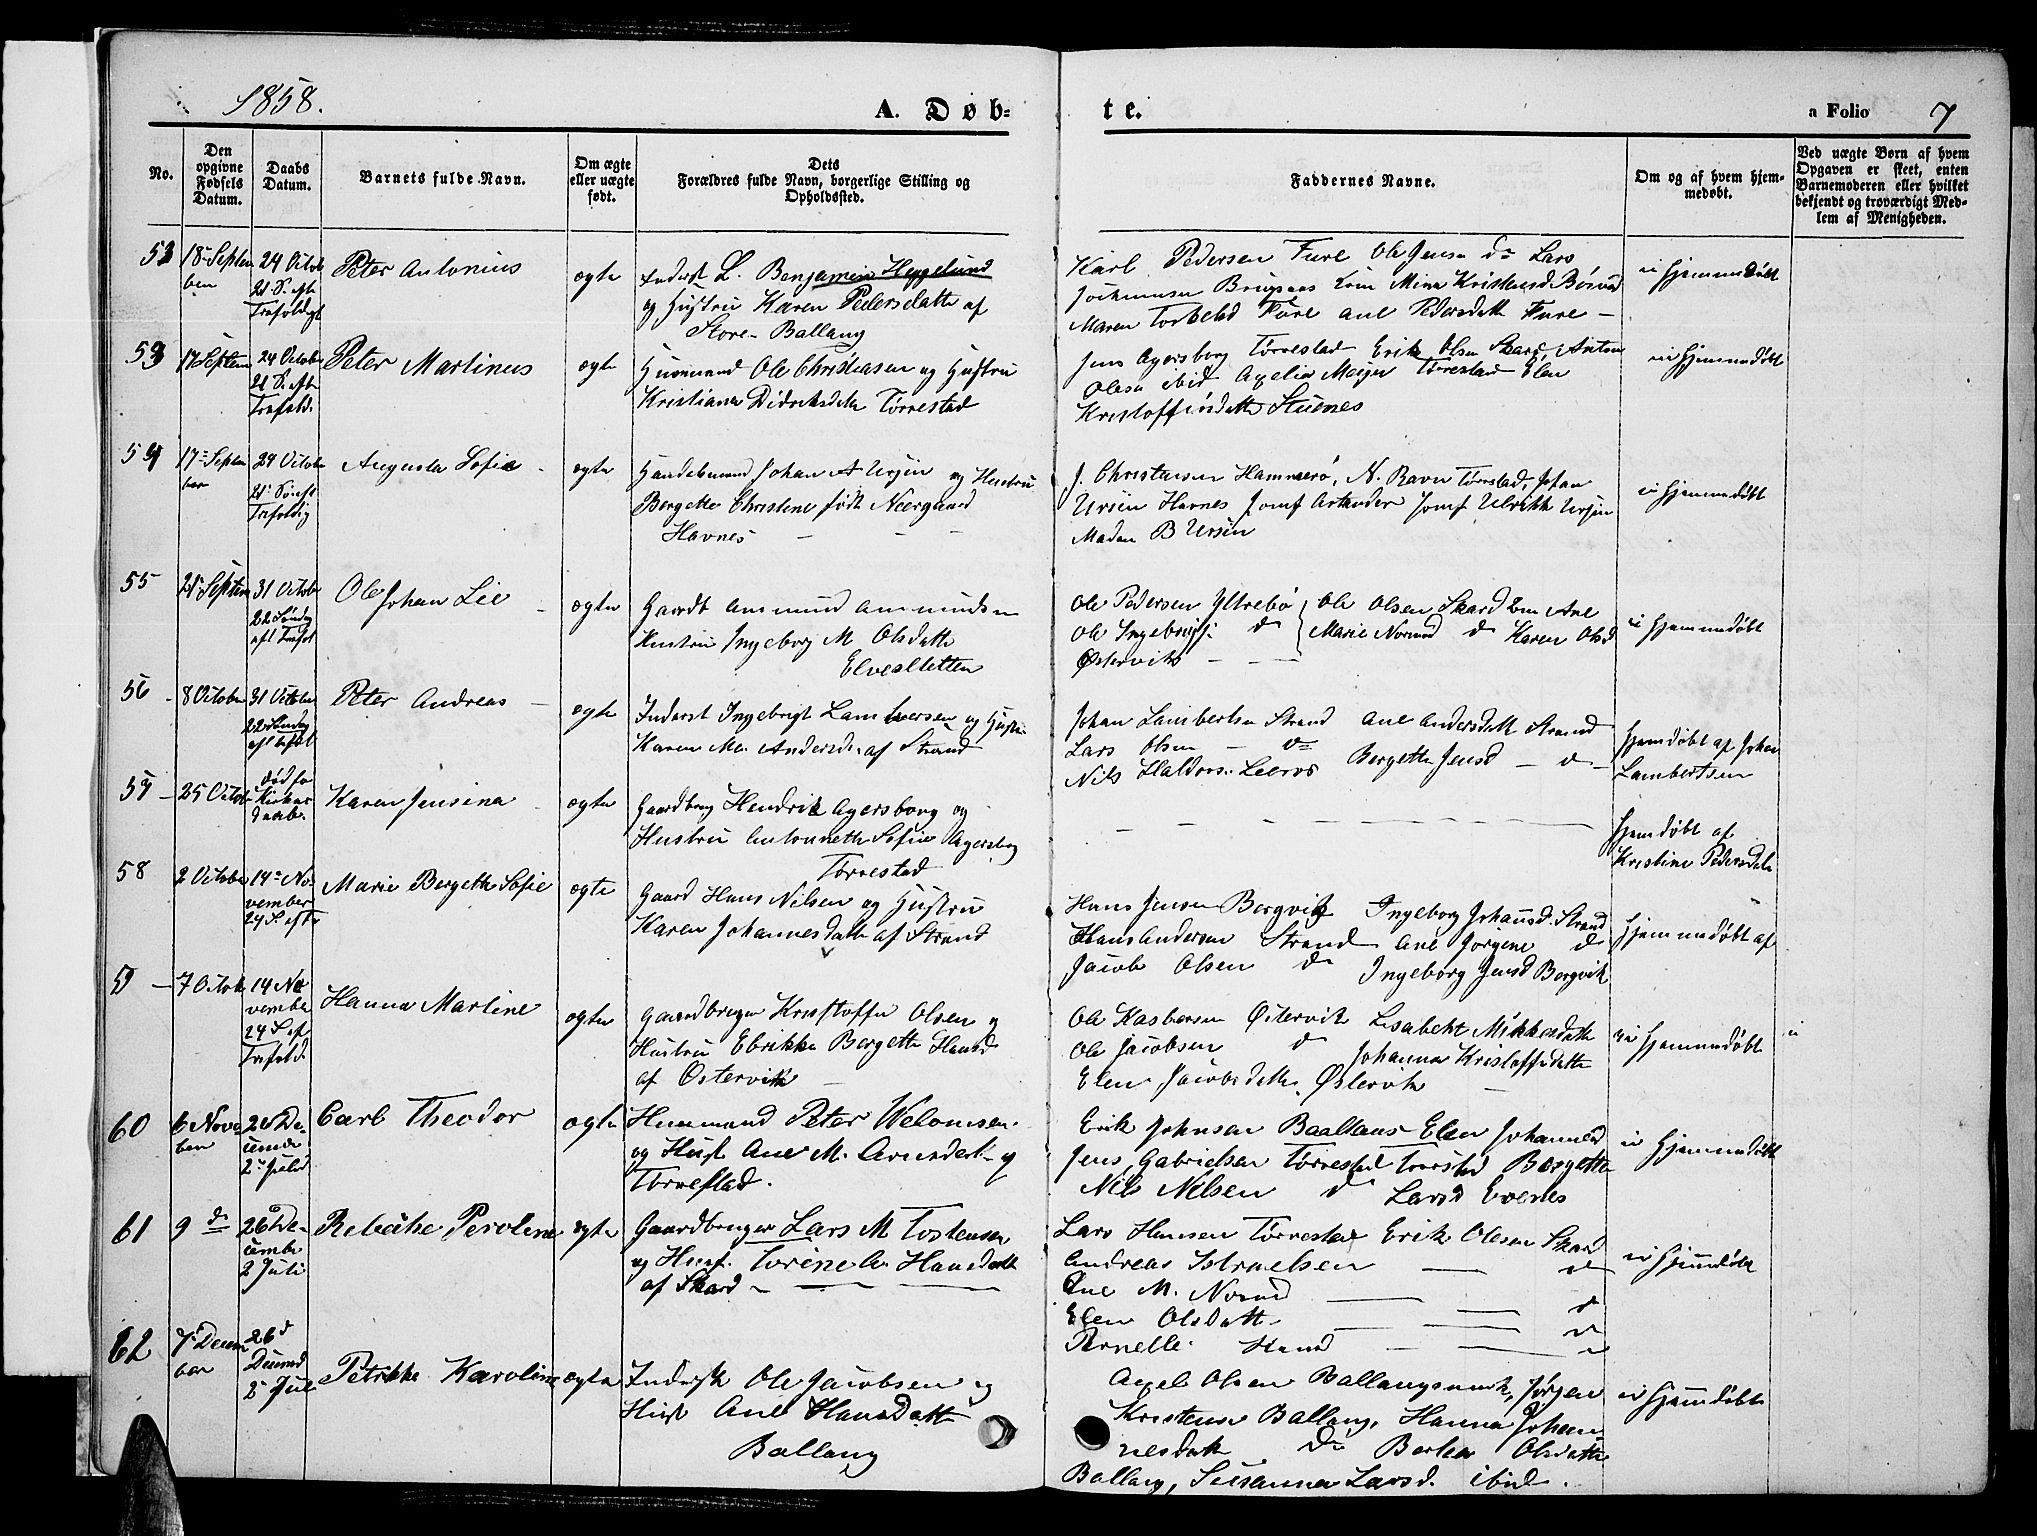 1858.
A. Døb-
te.
a Folio 7
No.
Den opgivne Fødsels Datum.
Daabs Datum.
Barnets fulde Navn.
Om ægte eller uægte født.
Dets Forældres fulde Navn, borgerlige Stilling og Opholdssted.
Faddernes Navne.
Om og af hvem hjemmedøbt.
Ved uægte Børn af hvem Opgaven er skeet, enten Barnemoderen eller hvilket bekjendt og troværdigt Medlem af Menigheden.
53 18 Septem
ber
24 Octob
21 S. eft
Trefoldigt
Peter Antonius
ægte
Inderst L. Benjamin Heggelund
og Hustru Karen Pedersdatter af
Store-Ballang
Karl Pedersen Fure Ole Jensen do Lars
Maren Fure Ane Pedersdatt Fure -
ei hjemmedøbt
53 17 Septem
24 Octobr
21 S. eft
Trefold.
Peter Martinus
ægte
Huusmand Ole Christiansen og Hustru
Kristiana Didriksdatter Tørrestad
Jens Agersborg Tørrestad Erik Olsen Skard, Anton
Olsen ibid Axelia Meyer Tørrestad Elen
Kristoffersdatter Stuenes
ei hjemmedøbt
54 17 Septem
ber
24 Octobr
21 Sø. eft
Trefoldig
Augusta Sofie -
ægte
Handelsmand Johan A Ursin og Hustru
Bergette Christine født Neergaard
Havnes - - -
J. Christensen Hammerø, N. Ravn Tørrestad, Johan
Ursin Havnes Jomf Jomf Ulrikke Ursin
Madam B Ursin
ei hjemmedøbt
55 21 Septem
31 Octobr
22 Søndag
eft Trefol
Ole Johan Lie -
ægte
Gaardb Ammund Ammundsen
Hustru Ingeborg M Olsdatter
Elvesletten
Ole Pedersen Yttrebø Ole Olsen Skard Ane
Ole Ingebrigts. do Marie Normand do Karen Olsd
Østervik - - -
ei hjemmedøbt
56 8 October
31 October
22 Søndag
eft trefol
Peter Andreas -
ægte
Inderst Ingebrigt Lambersen og Hustru
Karen Ma. Andersd. af Strand
Johan Lambertsen Strand Ane Andersdatt Strand
Lars Olsen - do Bergette Jensd - do -
Nils Haldors. Leeros
hjemdøbt af Johan
Lambertsen
57 - 25 Octob
død før
Kirkes
daab.
Karen Jensina -
ægte
Gaardbrug Hendrik Agersborg og
Hustru Antonette Sofie Agersborg
Tørrestad
hjemdøbt af
Kristine Pedersdatter
58 2 October
14 No-
vember
24 S eft
Marie Bergette Sofie
ægte
Gaard Hans Nilsen og Hustru
Karen Johannesdatt af Strand
Hans Jensen Bergvik Ingeborg Johansd. Strand
Hans Andersen Strand Ane Jørgine do
Jacob Olsen do Ingeborg Jensd Bergvik
hjemmedøbt af
- 7 Octob
14 No
vember
24 S eft
Trefold.
Hanna Martine
ægte
Gaardbruger Kristoffer Olsen og
Hustru Elrikke Bergette Hansd
af Østervik -
Ole Kasbersen Østervik Lisabeht Mikkelsdatter
Ole Jacobsen do Johanna Kristoffersdatter
Elen Jacobsdatter Østervik -
ei hjemmedøbt
60 6 Novem
ber
26 De-
cember
2 Juled
Carl Theodor
ægte
Huusmand Peter Welomsen
og Hust Ane M. Arnsdatt
Tørrestad.
Erik Johnsen Baallans Elen Johannesd
Jens Gabrielsen Tørrestad Torstad Bergette
Nils Nilsen do Larsd Evenes
ei hjemmedøbt
61 9 do
26 De-
cember
2 Jul
Rebekke Peroline
ægte
Gaardbruger Lars M Tostensen
og Hust. Torine A. Hansdatt
af Skard -
Lars Hansen Tørrestad Erik Olsen Skard
Andreas Isbraelsen - do
Ane M. Normd - - do
Elen Olsdatt - - do
Pernelle Hansd - -
ei hjemdøbt
62 7 Decem
ber
26
Decemb
2 Jul
Petrikke Karoline
ægte
Inderst Ole Jacobsen og
Hust Ane Hansdatt
Ballang
Axel Olsen Ballangsmark, Jørgen
Kristensen Ballang, Hanna Johan-
nesdatt do Berlea Olsdatter
Ballang, Susanna Larsd. ibid.
ei hjemdøbt